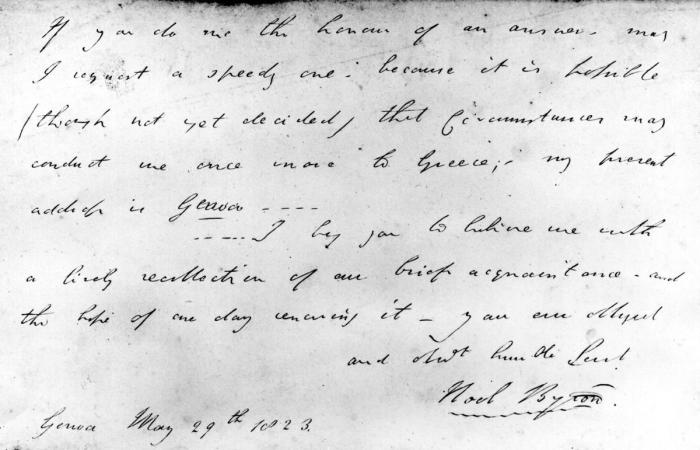 If you do me the honour of an answer may
I request a speedy one; because it is possible
(though not yet decided) that Circumstances may
conduct me once more to Greece;- my present
address is Genoa ----
-----I beg you to believe me with
a lively recollection of our brief acquaintance - and
the hope of one day renewing it - your obliged
and obdt humble Servt
Noel Byron.
Genoa May 29th 1823.